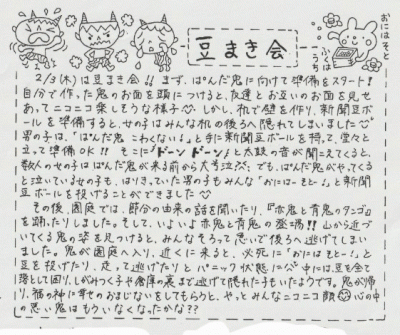 豆まき会
おにはそと
ふくはうち
2/3(木)は豆まき会!! まず、ぱんだ鬼に向けて準備をスタート!
自分で作った鬼のお面を頭につけると、友達とお互いのお面を見せ
あってニコニコ楽しそうな様子 しかし、机で壁を作り、新聞豆ボ
ールを準備すると、女の子はみんな机の後ろへ隠れてしまいました
男の子は、「ぱんだ鬼 こわくない!」と手に新聞豆ボールを持って、堂々と
立って準備OK!! そこに「ドーン ドーン」と太鼓の音が聞えてくると、
数人の女の子はぱんだ鬼が来る前から大号泣 でも、ぱんだ鬼がやってくる
と泣いている女の子も、はりきっていた男の子もみんな「おにはーそとー!」と新聞
豆ボールを投げることができました
その後、園庭では、節分の由来の話を聞いたり、『赤鬼と青鬼のタンゴ』
を踊ったりしました。そして、いよいよ赤鬼と青鬼の登場!! 山から近づ
いてくる鬼の姿を見つけると、みんなそろって急いで後ろへ逃げてしまい
ました。鬼が園庭へ入り、近くに来ると、必死に「おにはーそとー!」と
豆を投げたり、走って逃げたりとパニック状態に 中には、豆を全て
落として固り、しがみつく子や倉庫の裏まで逃げて隠れた子もいたようです。鬼が帰
り、福の神に幸せのおまじないをしてもらうと、やっとみんなニコニコ顔 心の中
の悪い鬼はもういなくなったかな??